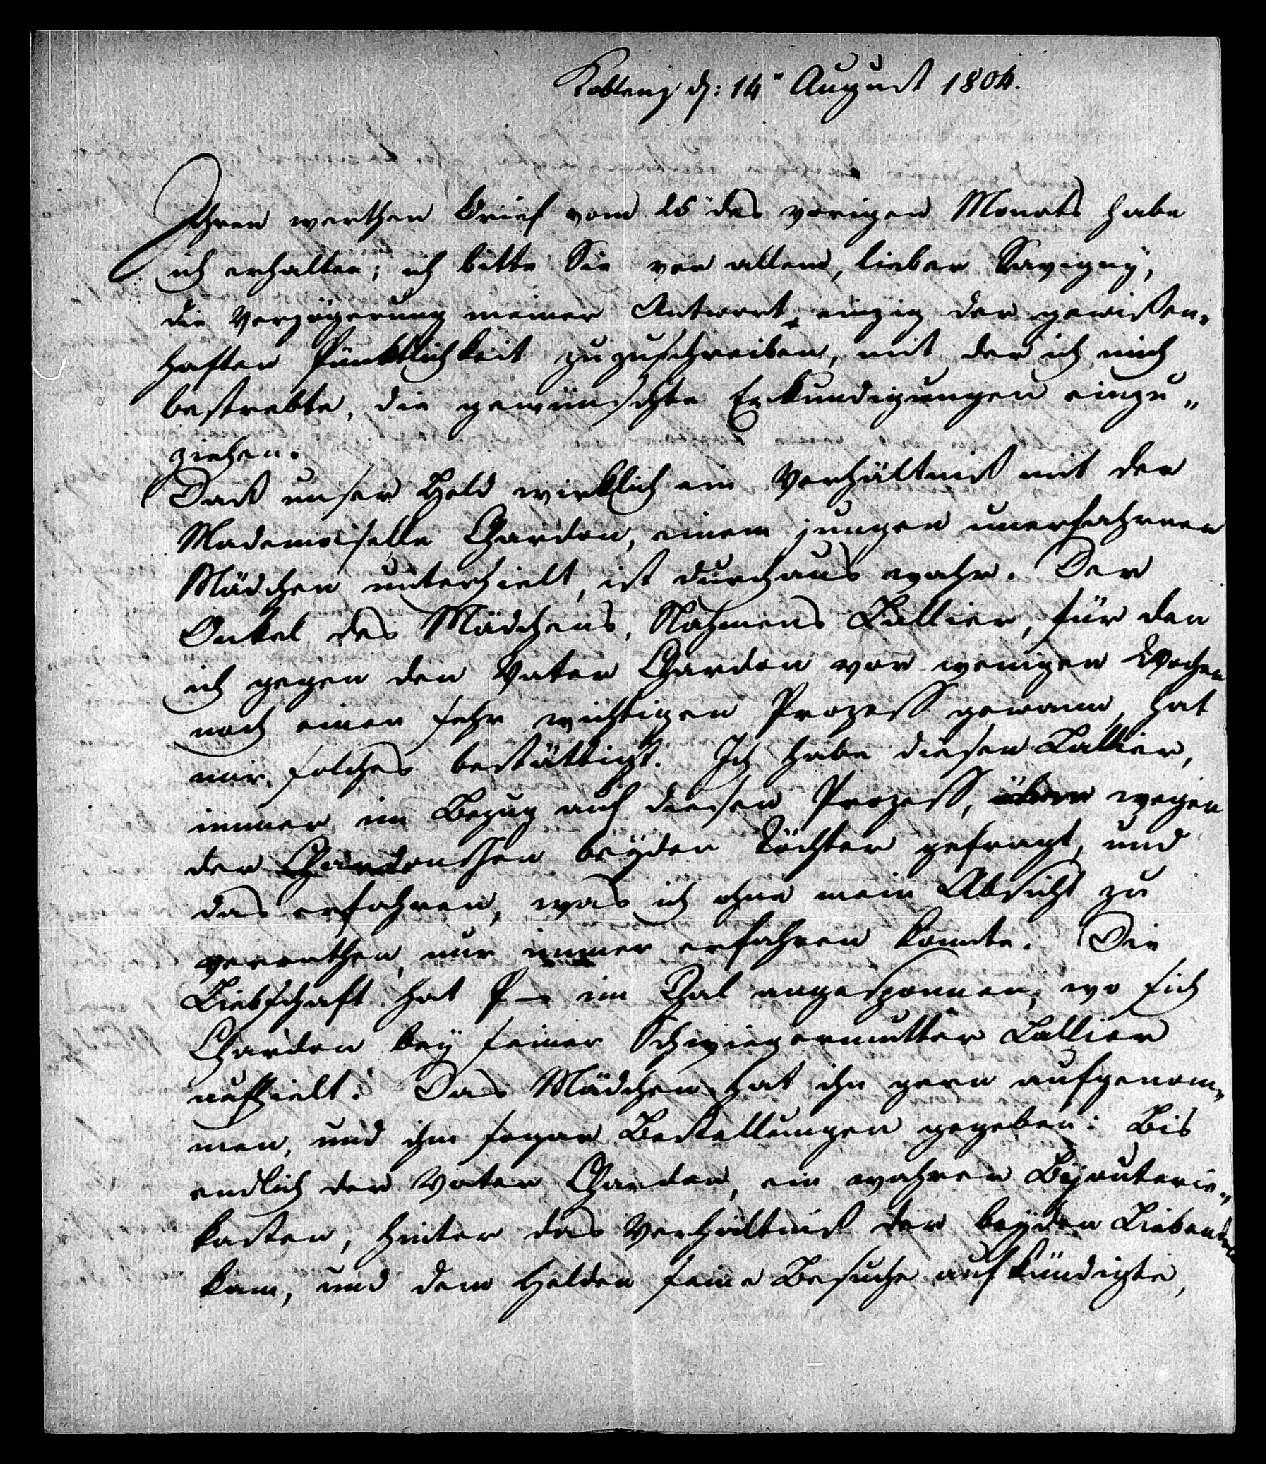 Koblenz d: 14" August 1804.
Ihren werthen Brief vom 26" des vorigen Monats habe
ich erhalten; ich bitte Sie vor allem, lieber Savigny,
die Verzögerung meiner Antwort einzig der gewißen„
haften Pünktlichkeit zuzuschreiben, mit der ich mich
bestrebte, die gewünschte Erkundigungen einzu„
ziehen.
Daß unser Held wirklich ein Verhältniß mit der
Mademoiselle Chardon, einem jungen unerfahrnen
Mädchen unterhielt, ist durchaus wahr. Der
Onkel des Mädchens, Nahmens Lallier, für den
ich gegen den Vater Chardon vor wenigen Wochen
noch einen sehr wichtigen Prozeß gewann, hat
mir solches bestättigt. Ich habe diesen Lallier,
immer im Bezug auf diesen Prozeß, wegen
der Chardonschen beyden Töchter gefragt, und
das erfahren, was ich ohne mein Absicht zu
verrathen, nur immer erfahren konnte. Die
Liebschaft hat P— im Thal angesponnen, wo sich
Chardon bey seiner Schwiegermutter Lallier
aufhielt. Das Mädchen hat ihn gern aufgenom„
men, und ihm sogar Bestellungen gegeben: Bis
endlich der Vater Chardon, ein wahrer Bijouterie„
kasten, hinter das Verhältniß der beyden Liebenden
kam, und dem Helden seine Besuche aufkündigte,